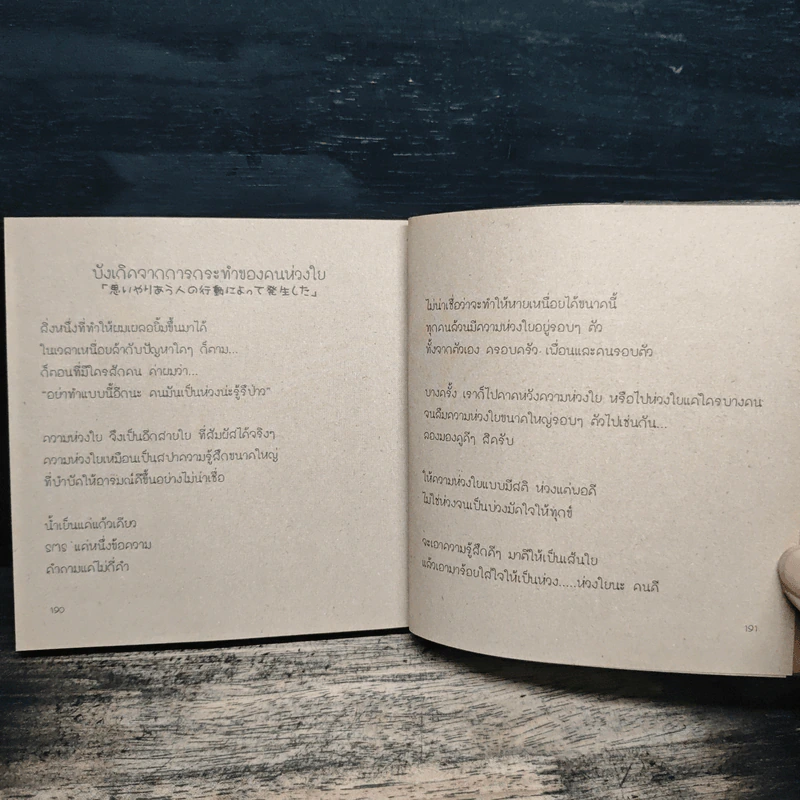 บังเกิดจากการกระทำของคนห่วงใย
「思いやりあう人の行動によって発生した」
สิ่งหนึ่งที่ทำให้ผมเผลอยิ้มขึ้นมาได้
ในเวลาเหนื่อยล้ากับปัญหาใดๆ ก็ตาม...
ก็ตอนที่มีใครสักคน ด่าผมว่า...
"อย่าทำแบบนี้อีกนะ คนมันเป็นห่วงน่ะรู้รึป่าว"
ความห่วงใย จึงเป็นอีกสายใย ที่สัมผัสได้จริงๆ
ความห่วงใยเหมือนเป็นสปาความรู้สึกขนาดใหญ่
ที่บำบัดให้อารมณ์ดีขึ้นอย่างไม่น่าเชื่อ
น้ำเย็นแค่แก้วเดียว
sms แค่หนึ่งข้อความ
คำถามแค่ไม่กี่คำ
190
ไม่น่าเชื่อว่าจะทำให้หายเหนื่อยได้ขนาดนี้
ทุกคนล้วนมีความห่วงใยอยู่รอบๆ ตัว
ทั้งจากตัวเอง ครอบครัว เพื่อนและคนรอบตัว
บางครั้ง เราก็ไปคาดหวังความห่วงใย หรือไปห่วงใยแค่ใครบางคน
จนลืมความห่วงใยขนาดใหญ่รอบๆ ตัวไปเช่นกัน...
ลองมองดูดีๆ สิครับ
ให้ความห่วงใยแบบมีสติ ห่วงแค่พอดี
ไม่ใช่ห่วงจนเป็นบ่วงมัดใจให้ทุกข์
จะเอาความรู้สึกดีๆ มาตีให้เป็นเส้นใย
แล้วเอามาร้อยใส่ใจให้เป็นห่วง.....ห่วงใยนะ คนดี
191